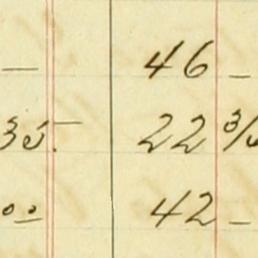 — 46 —
35. 22 3/
00 42 —